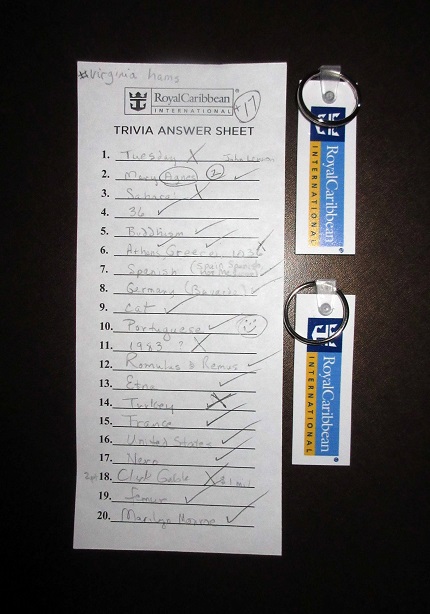 #Virginia hams
RoyalCaribbean
INTERNATIONAL
+17
TRIVIA ANSWER SHEET
1. Tuesday X John Lennon
2. Mary Agnes 2
3. Sahara X
4. 36
5. Buddhism
6. Athens Greece
7. Spanish (Spain Spanish
8. Germany (Bavaria)
9. Cat
10. Portuguese
11. 1983 ? X
12. Romulus & Remus
13. Etna
14. Turkey
15. France
16. United States
17. Nero
2pt 18. Clark Gable X $1 mil
19. femur
20. Marilyn Monroe
RoyalCaribbean®
INTERNATIONAL
RoyalCaribbean®
INTERNATIONAL